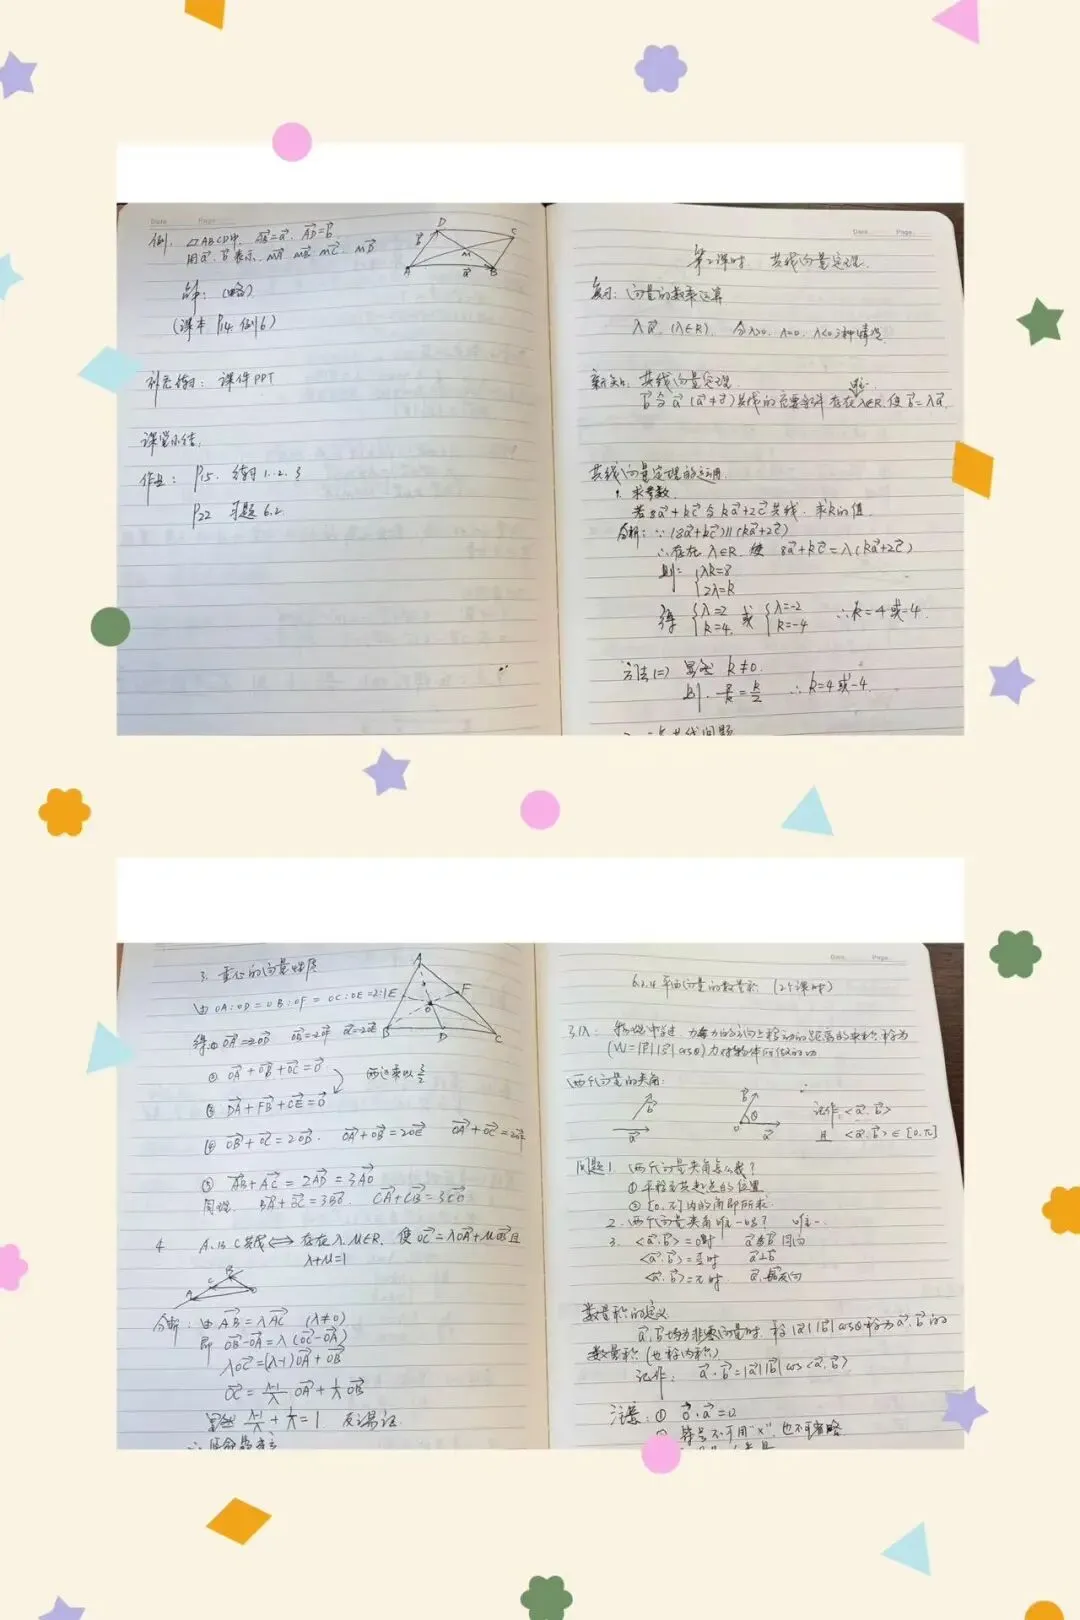 Date Page
例. ▱ABCD中, AB=a, AD=b
用a, b表示 MA MB MC MD
D
C
b
M
A
a
B
解: (略)
(课本 P14 例6)
补充练习: 课件PPT
课堂小结:
作业: P15. 练习 1. 2. 3
P22 习题 6.2
Date Page
第2课时. 共线向量定理.
复习: 向量的数乘运算
λa (λ∈R) 分λ>0, λ=0, λ<0 三种情况
新知: 共线向量定理 唯一
b与a (a≠0)共线的充要条件 存在λ∈R, 使b=λa.
共线向量定理的运用
1. 求参数
若8a+kc与ka+2c共线. 求k的值
分析: ∵ (8a+kc)∥(ka+2c)
∴存在λ∈R 使 8a+kc=λ(ka+2c)
则: {λk=8
2λ=k
得 {λ=2 k=4 或 {λ=-2 k=-4 ∴k=4或-4.
方法(二) 显然 k≠0.
则. 8/k=k/2 ∴k=4或-4.
3. 重心的向量性质
由OA:OD=OB:OF=OC:OE=2:1
A
E
F
O
B
D
C
① OA+OB+OC=0
两边乘以3/2
DA+FB+CE=0
AB+AC=2AD=3AO
同理. CA+CB=3CO
4. A. B. C共线⟺存在λ. μ∈R, 使OC=λOA+μOB且
λ+μ=1
分析: 由AB=λAC (λ≠0)
即 OB-OA=λ(OC-OA)
λOC=(λ-1)OA+OB
OC=(λ-1)/λ OA+1/λ OB
显然 (λ-1)/λ+1/λ=1 反之易证
Date Page
6.2.4 平面向量的数量积 (2个课时)
(W=|F||S|cosθ)力对物体所做的功
两个向量的夹角:
b
a
b
θ
O
a
记作: <a, b>
且 <a, b>∈[0, π]
问题1. 两个向量夹角怎么找?
① 平移至共起点的位置
② [0, π]内的角即所求.
2. 两个向量夹角唯一吗? 唯一.
3. <a, b>=0时 a与b同向
<a, b>=π/2时 a⊥b
<a, b>=π时 a, b反向
数量积的定义
a, b均为非零向量时. 称|a||b|cosθ称为a, b的
数量积 (也称内积)
记作: a·b=|a||b|cos<a, b>
注意: ① 0·a=0.
② 符号不可用"×", 也不可省略